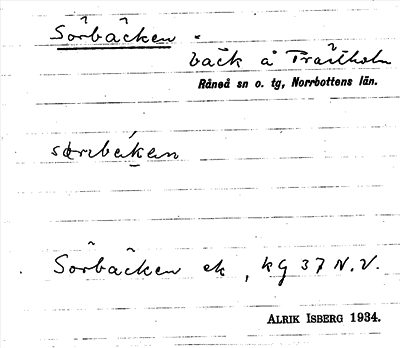 Sörbäcken.
bäck å Prästholm
Råneå sn o. tg, Norrbottens län.
Sörbäcken ek, kg 37 N.V.
ALRIK ISBERG 1934.